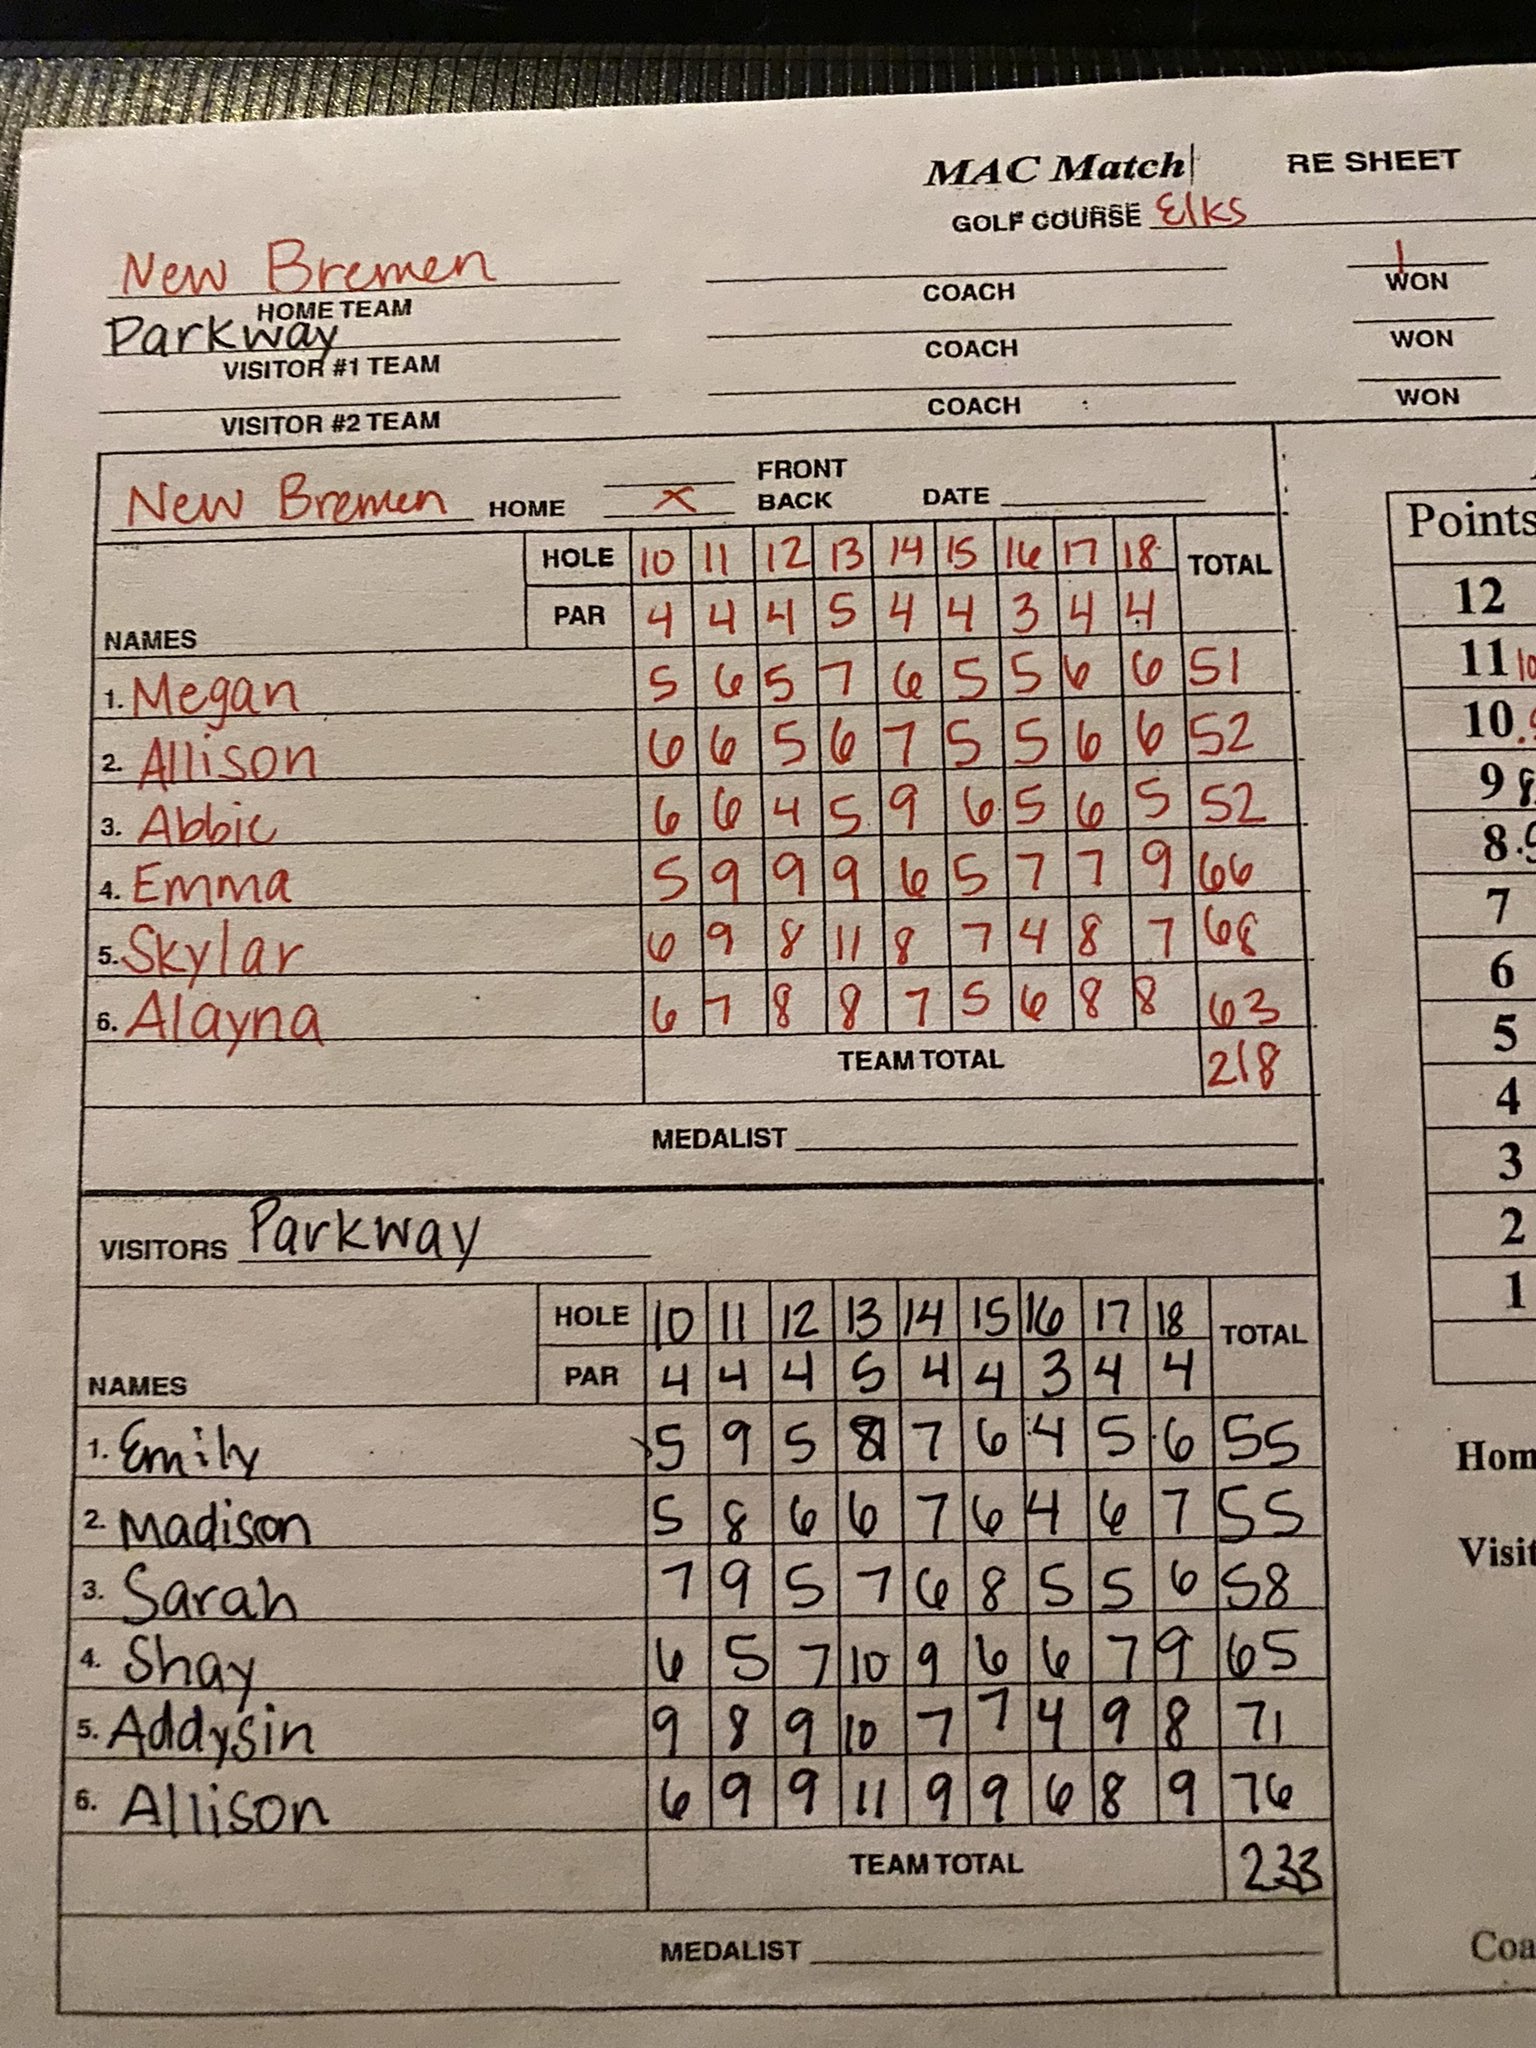 MAC Match RE SHEET
GOLF COURSE Elks
New Bremen 1
HOME TEAM COACH WON
Parkway
VISITOR #1 TEAM COACH WON
VISITOR #2 TEAM COACH WON
FRONT
New Bremen HOME X BACK DATE
HOLE 10 11 12 13 14 15 16 17 18 TOTAL
NAMES PAR 4 4 4 5 4 4 3 4 4
1. Megan 5 6 5 7 6 5 5 6 6 51
2. Allison 6 6 5 6 7 5 5 6 6 52
3. Abbie 6 6 4 5 9 6 5 6 5 52
4. Emma 5 9 9 9 6 5 7 7 9 66
5. Skylar 6 9 8 11 8 7 4 8 7 68
6. Alayna 6 7 8 8 7 5 6 8 8 63
TEAM TOTAL 218
MEDALIST
VISITORS Parkway
HOLE 10 11 12 13 14 15 16 17 18 TOTAL
NAMES PAR 4 4 4 5 4 4 3 4 4
1. Emily 5 9 5 8 7 6 4 5 6 55
2. Madison 5 8 6 6 7 6 4 6 7 55
3. Sarah 7 9 5 7 6 8 5 5 6 58
4. Shay 6 5 7 10 9 6 6 7 9 65
5. Addysin 9 8 9 10 7 7 4 9 8 71
6. Allison 6 9 9 11 9 9 6 8 9 76
TEAM TOTAL 233
MEDALIST
Points
12
11 10
10
9
8
7
6
5
4
3
2
1
Hom
Visit
Coa